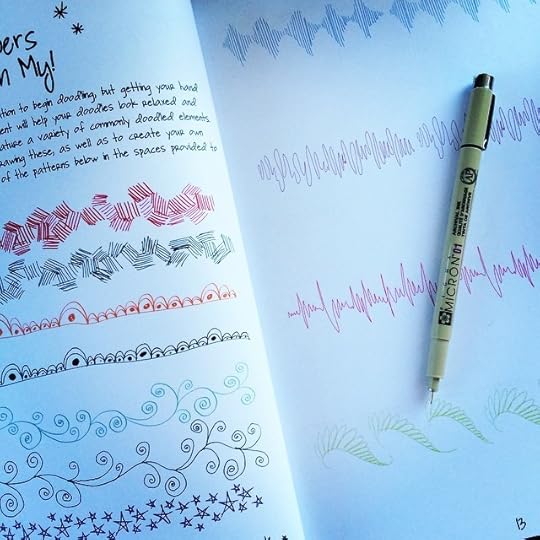 My!
tion to begin doodling, but getting your hand
ent will help your doodles look relaxed and
ature a variety of commonly doodled elements.
rawing these, as well as to create your own
of the patterns below in the spaces provided to
MICRON 01
13